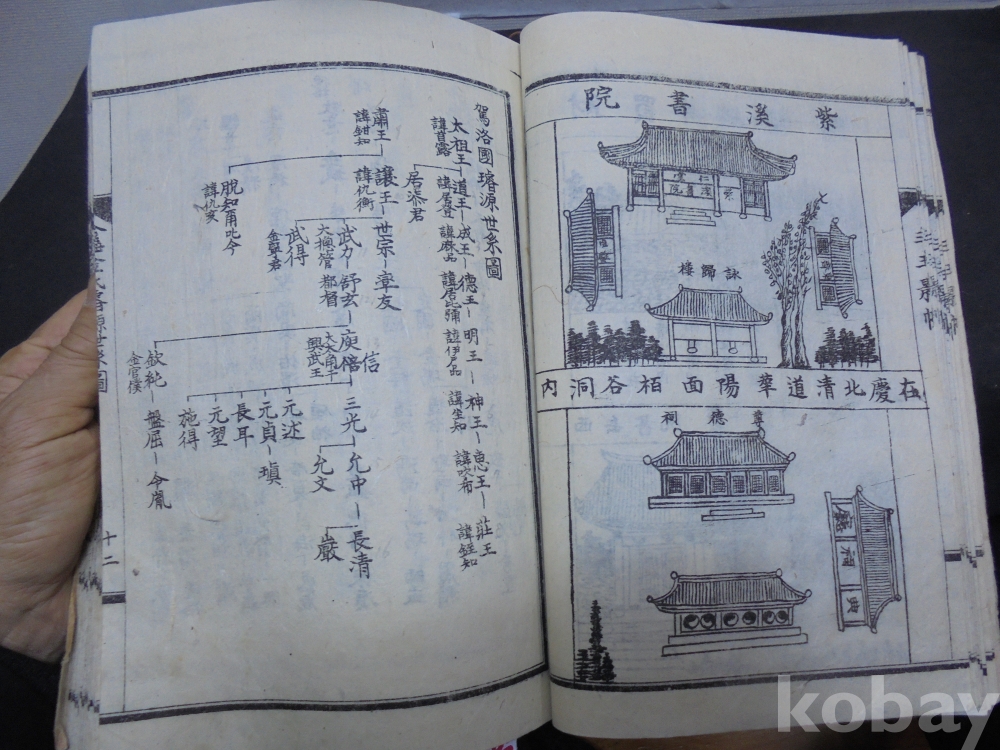 紫溪書院
詠歸樓
在慶北清道華陽面栢谷洞內
尊德祠
典祠廳
駕洛國璿源世系圖
太祖王
諱首露
道王
諱居登
成王
諱麻品
德王
諱居叱彌
明王
諱伊品
神王
諱坐知
惠王
諱吹希
莊王
諱銍知
居添君
肅王
諱鉗知
讓王
諱仇衡
諱仇亥
世宗
章友
武力
大摠管
舒玄
都督
武得
庾信
太大角干
興武王
三光
允中
長清
巖
允文
元述
元貞
瑱
長耳
元望
施得
欽純
盤屈
令胤
十二
kobay